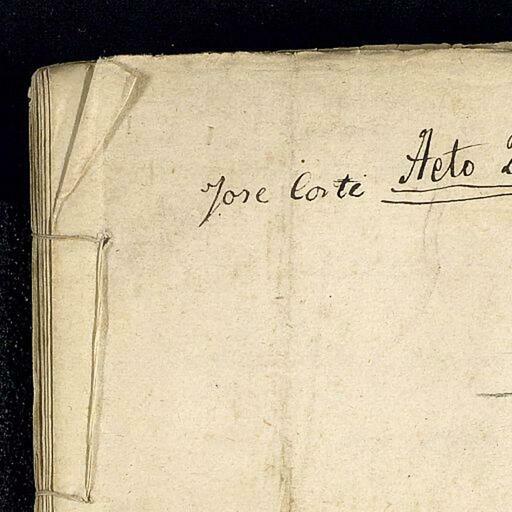 Jose Corte Acto